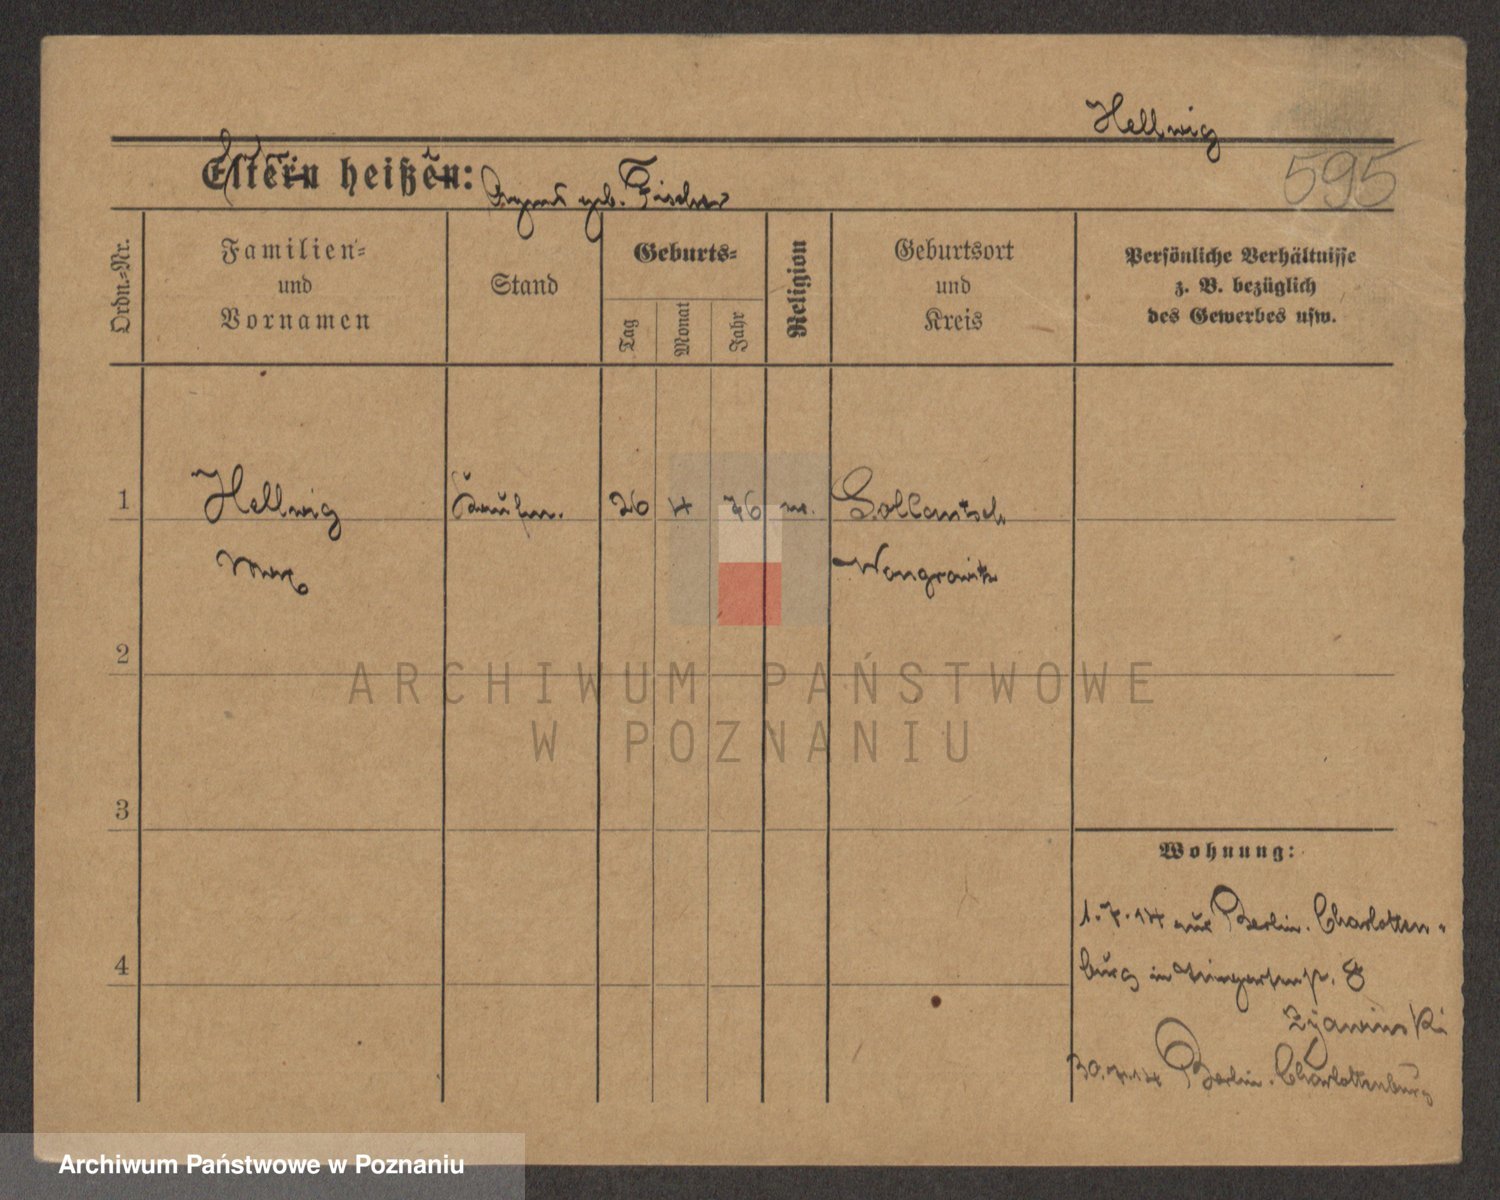 Hellwig
595
Eltern heißen:
geb. Fischer
Ordn.-Nr.
Familien-
und
Vornamen
Stand
Geburts-
Tag
Monat
Jahr
Religion
Geburtsort
und
Kreis
Persönliche Verhältnisse
z. B. bezüglich
des Gewerbes usw.
1
Hellwig
Max
Kaufm.
26
4
76
Gollantsch
Wongrowitz
2
ARCHIWUM PAŃSTWOWE
W POZNANIU
3
Wohnung:
1.7.14 aus Berlin. Charlotten-
burg in Tiergartenstr. 8
4
30.7.14 Berlin. Charlottenburg
Archiwum Państwowe w Poznaniu